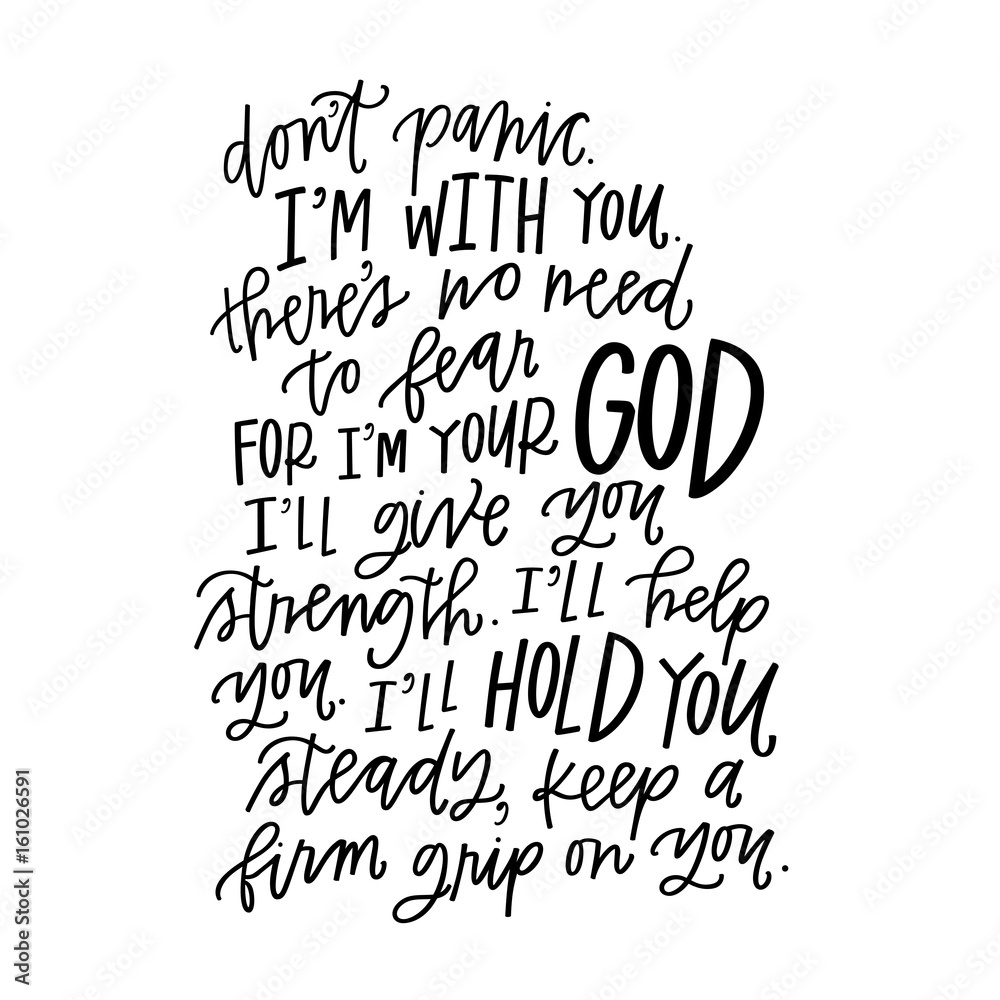 don't panic.
I'M WITH YOU.
there's no need
to fear
FOR I'M YOUR GOD
I'LL give you
strength. I'LL help
you. I'LL HOLD YOU
steady, keep a
firm grip on you.
Adobe Stock | #161026591